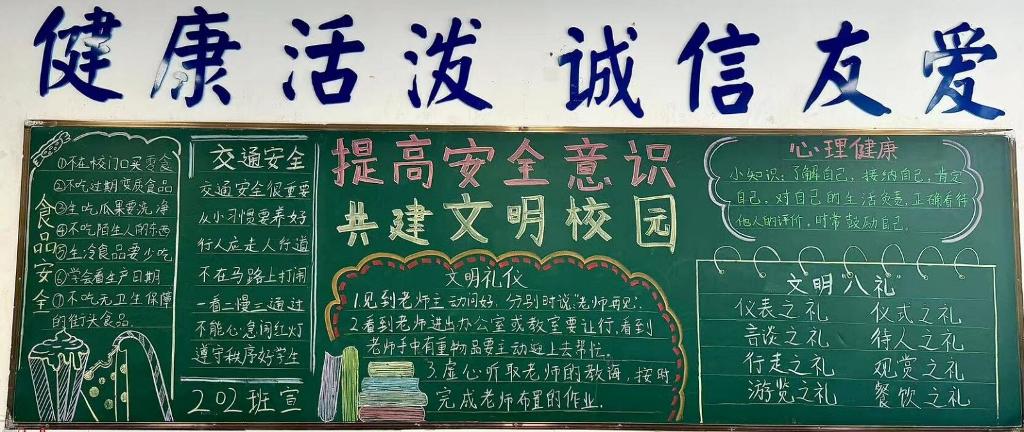 健康活泼 诚信友爱
食品安全
①不在校门口买零食
②不吃过期变质食品
③生吃瓜果要洗净
④不吃陌生人的东西
⑤生冷食品要少吃
⑥学会看生产日期
⑦不吃无卫生保障
的街头食品.
交通安全
交通安全很重要
从小习惯要养好
行人应走人行道
不在马路上打闹
一看二慢三通过
不能心急闯红灯
遵守秩序好学生
202班宣
提高安全意识
共建文明校园
文明礼仪
1.见到老师主动问好,分别时说“老师再见”.
2.看到老师进出办公室或教室要让行,看到
老师手中有重物品要主动迎上去帮忙.
3.虚心听取老师的教诲,按时
完成老师布置的作业.
心理健康
小知识:了解自己,接纳自己,肯定
自己,对自己的生活负责,正确看待
他人的评价,时常鼓励自己.
文明“八礼”
仪表之礼 仪式之礼
言谈之礼 待人之礼
行走之礼 观赏之礼
游览之礼 餐饮之礼